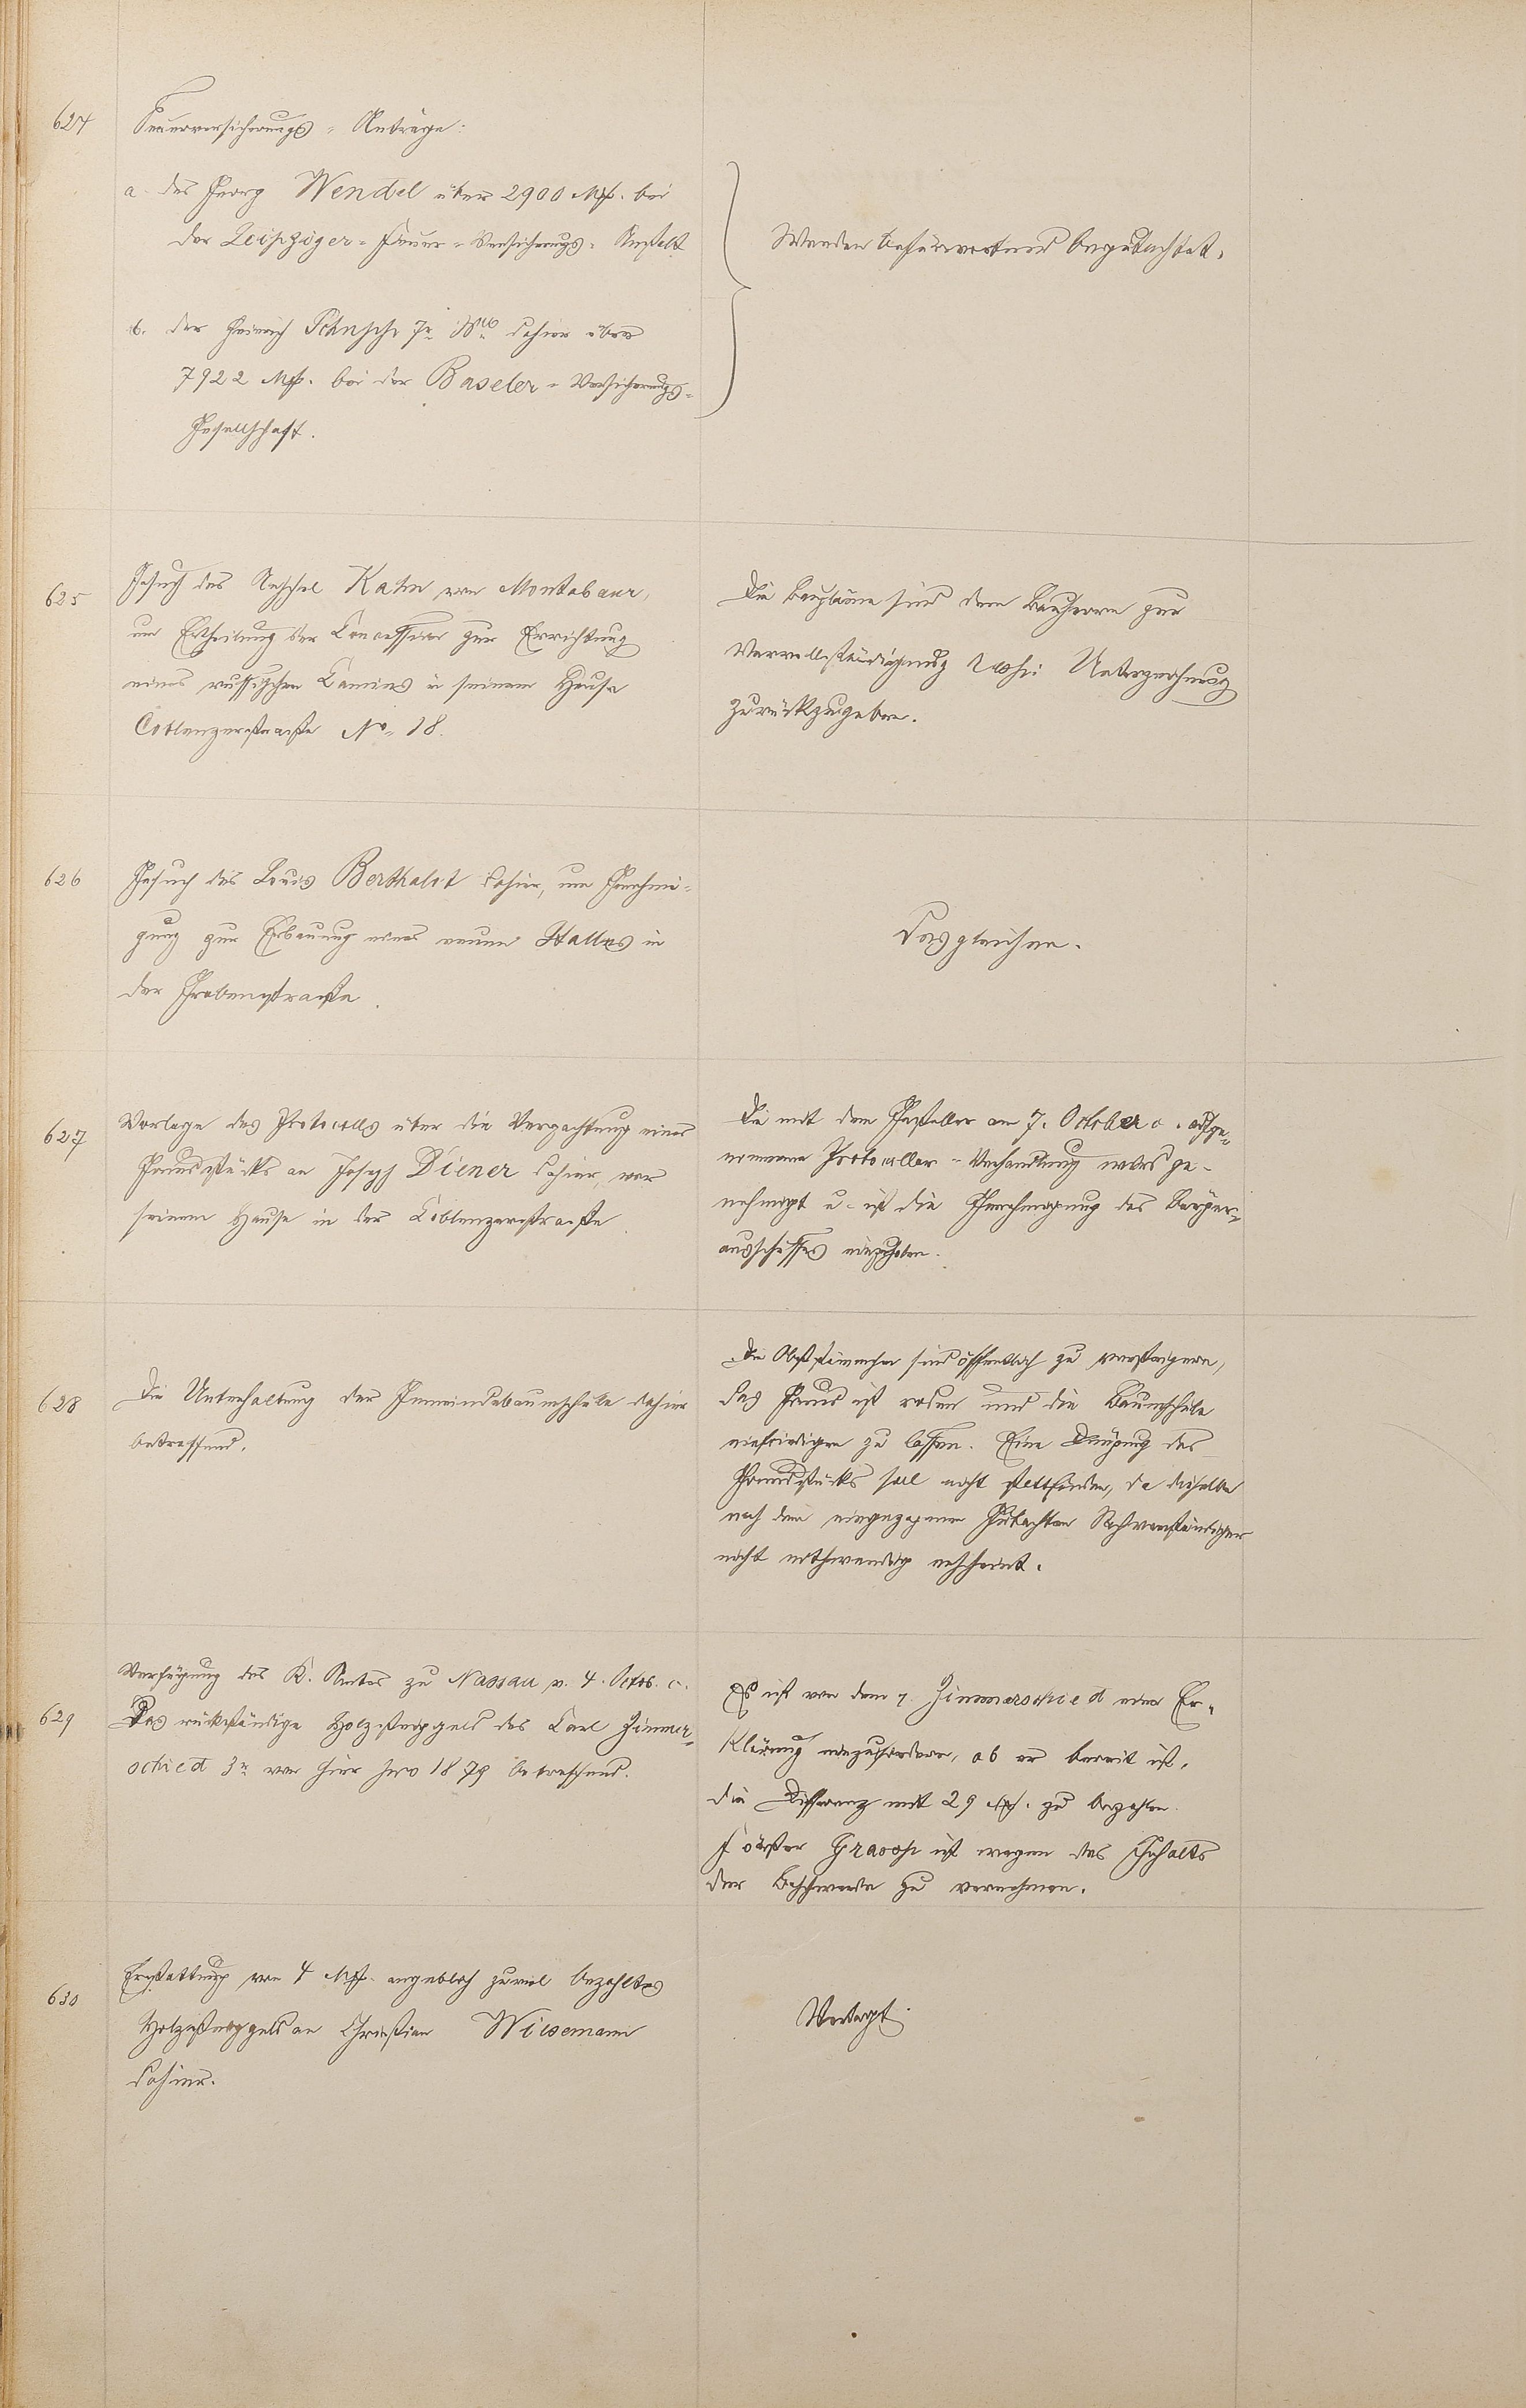 624
Feuerversicherungs-Anträge:
a. des Georg Wendel über 2900 Mk. bei
der Leipziger-Feuer-Versicherungs-Anstalt
b. der Heinrich 7r Wwe dahier über
7922 Mk. bei der Baseler-Versicherungs-
Gesellschaft.
Werden befürwortend begutachtet.
625
Gesuch des Anschel Kahn von Montabaur,
um Ertheilung der Concession zur Errichtung
eines russischen Kamines in seinem Hause
Coblenzerstraße No. 18.
Die Baupläne sind dem Bauherrn zur
Vervollständigung Unterzeichnung
zurückzugeben.
626
Gesuch des Louis Berthold dahier, um Genehmi-
gung zur Erbauung eines neuen Stalles in
der Grabenstraße.
Desgleichen.
627
Vorlage des Protocolls über die Verpachtung eines
Grundstücks an Joseph Diener dahier, vor
seinem Hause in der Coblenzerstraße
Die mit dem Gesteller am 7. October c. aufge-
nommene Protocollar-Verhandlung wird ge-
nehmigt u. ist die Genehmigung des Bürger-
ausschusses einzuholen.
628
Die Unterhaltung der Gemeindebaumschule dahier
betreffend.
Die Obststämmchen sind öffentlich zu versteigern,
das Land ist roden und die Baumschule
einfriedigen zu lassen. Eine Düngung des
Grundstücks soll nicht stattfinden, da dieselbe
nach dem eingezogenen Gutachten Sachverständiger
nicht nothwendig erscheint.
629
Verfügung des K. Amtes zu Nassau v. 4. Octbr. c.
Das rückständige Holzsteiggeld des Carl Zimmer-
schied 3r von hier pro 1879 betreffend.
Es ist von dem p. Zimmerschied eine Er-
klärung einzufordern, ob er bereit ist,
die Differenz mit 29 Mk. zu bezahlen.
Förster ist wegen des Inhalts
der Beschwerde zu vernehmen.
630
Erstattung von 4 Mk. angeblich zuviel bezahltes
Holzsteiggeld an Christian Wiesemann
dahier.
Vertagt.